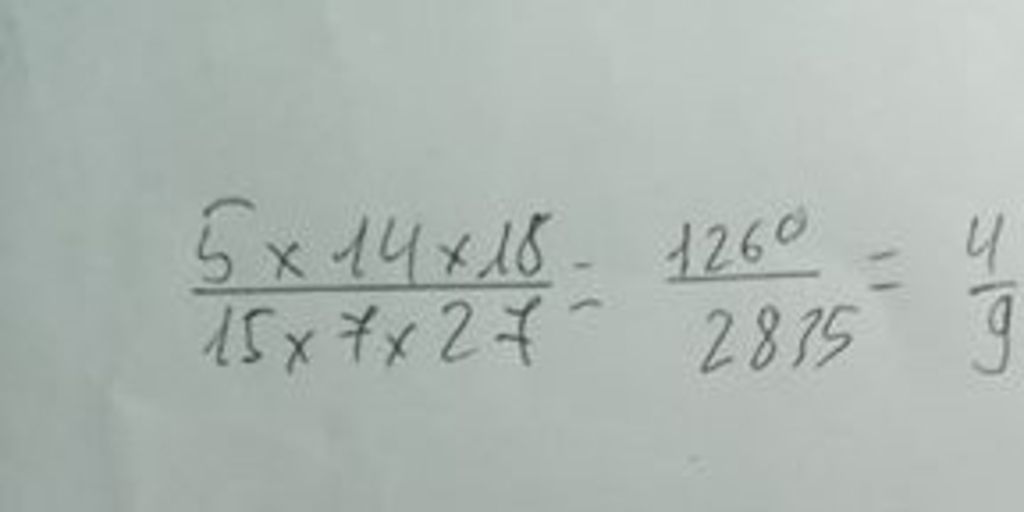 5 x 14 x 18 / 15 x 7 x 27 = 1260 / 2835 = 4 / 9